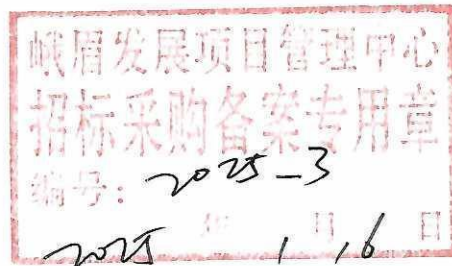 峨眉发展项目管理中心
招标采购备案专用章
编号：2025-3
2025年1月16日